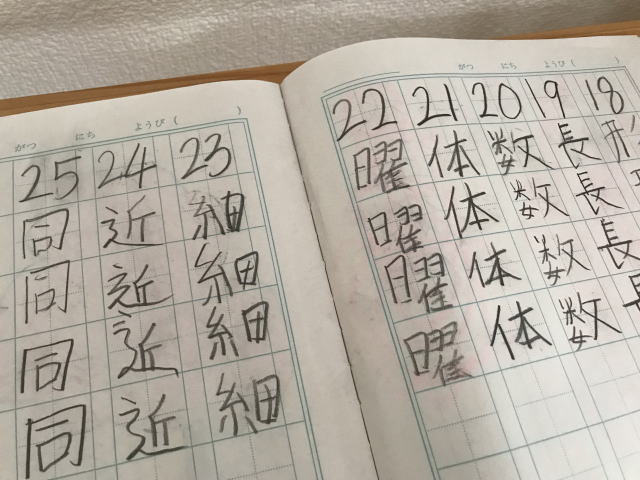 がつ にち ようび( )
18 形
19 長 長 長
20 数 数 数 数
21 体 体 体 体
22 曜 曜 曜 曜
がつ にち ようび( )
23 細 細 細 細
24 近 近 近 近
25 同 同 同 同